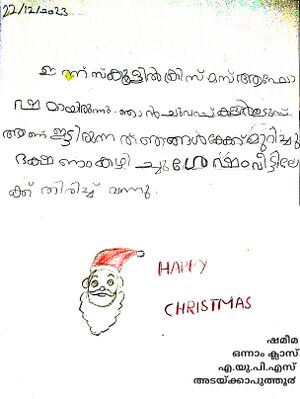 22/12/2023
ഇന്ന് സ്കൂളിൽ ക്രിസ്മസ് ആഘോ
ഷമായിരുന്നു. ഞാൻ ചുവപ്പ് കളർ ഉടുപ്പ്
ആണ് ഇട്ടിരുന്നത്. ഞങ്ങൾ കേക്ക് മുറിച്ചു
ഭക്ഷണം കഴിച്ചു ശേഷം വീട്ടിലേ
ക്ക് തിരിച്ച് വന്നു.
HAPPY
CHRISTMAS
ഷമീമ
ഒന്നാം ക്ലാസ്
എ.യു.പി.എസ്
അടയ്ക്കാപുത്തൂർ